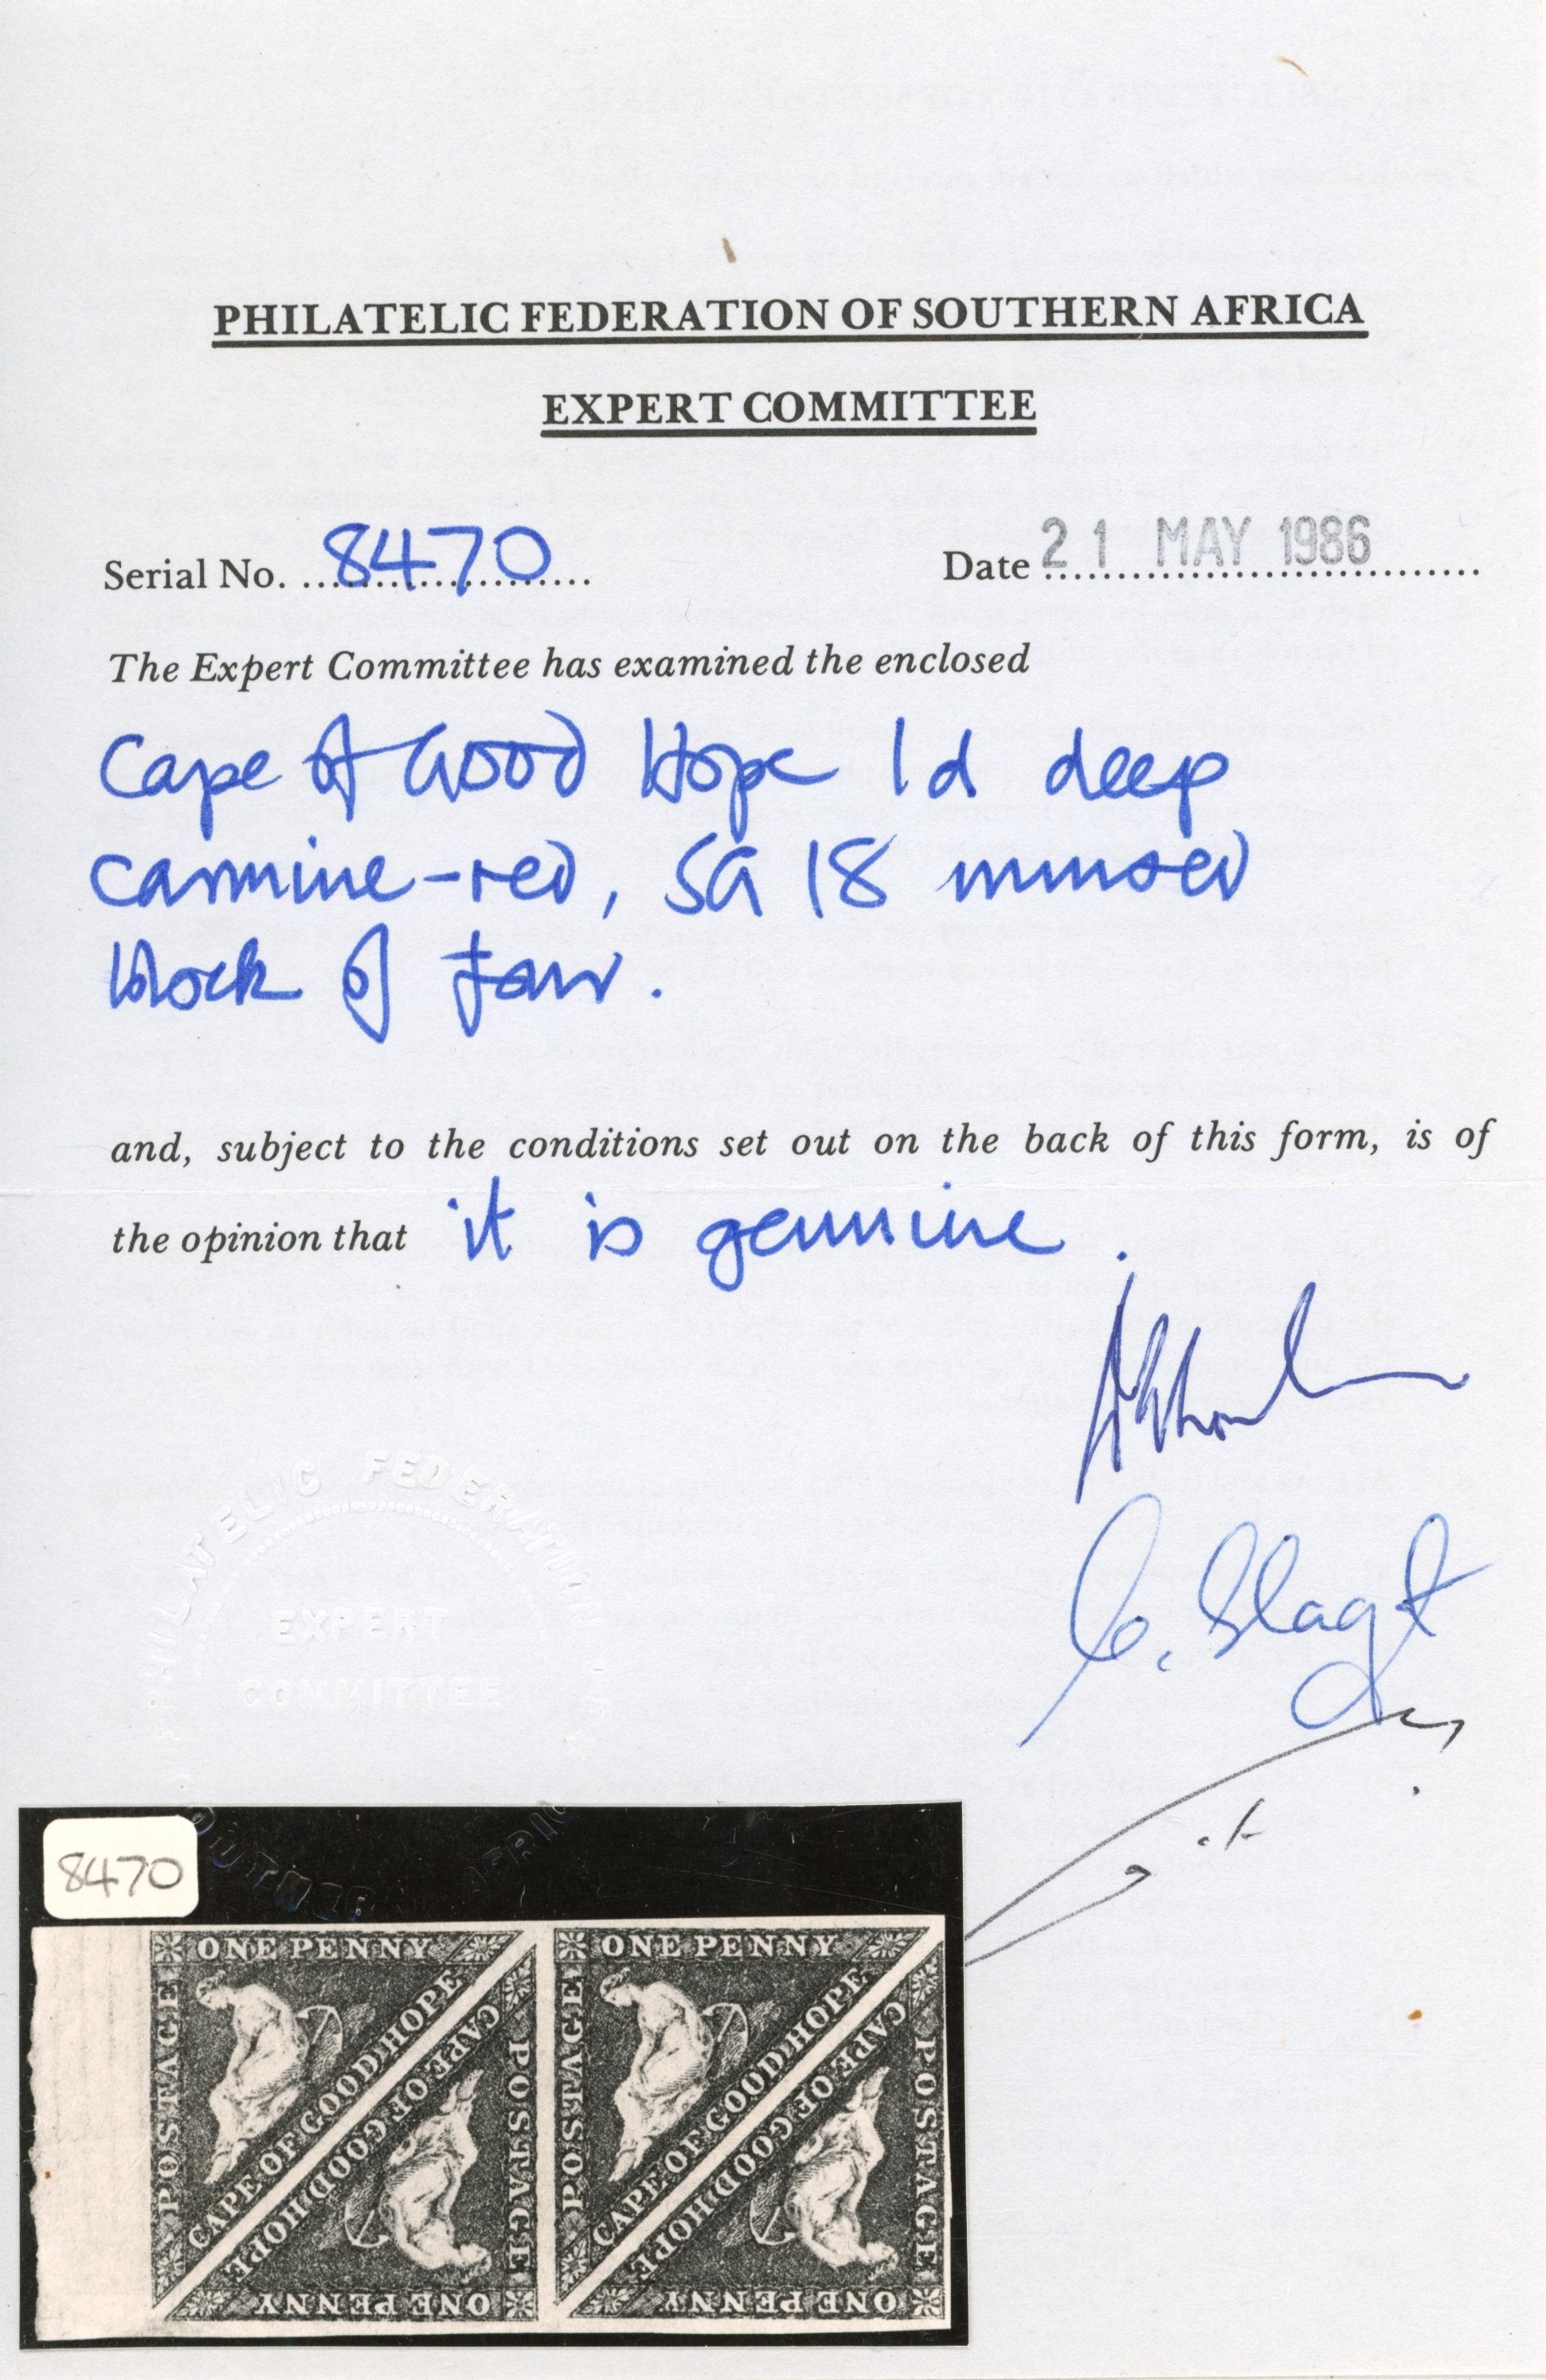 PHILATELIC FEDERATION OF SOUTHERN AFRICA
EXPERT COMMITTEE
Serial No. 8470
Date 21 MAY 1986
The Expert Committee has examined the enclosed
Cape of Good Hope 1d deep
carmine-red, SG 18 unused
block of four.
and, subject to the conditions set out on the back of this form, is of
the opinion that it is genuine.
C. Slagt
PHILATELIC FEDERATION
EXPERT
COMMITTEE
SOUTHERN AFRICA
8470
ONE PENNY
POSTAGE
CAPE OF GOOD HOPE
CAPE OF GOOD HOPE
POSTAGE
ONE PENNY
ONE PENNY
POSTAGE
CAPE OF GOOD HOPE
CAPE OF GOOD HOPE
POSTAGE
ONE PENNY